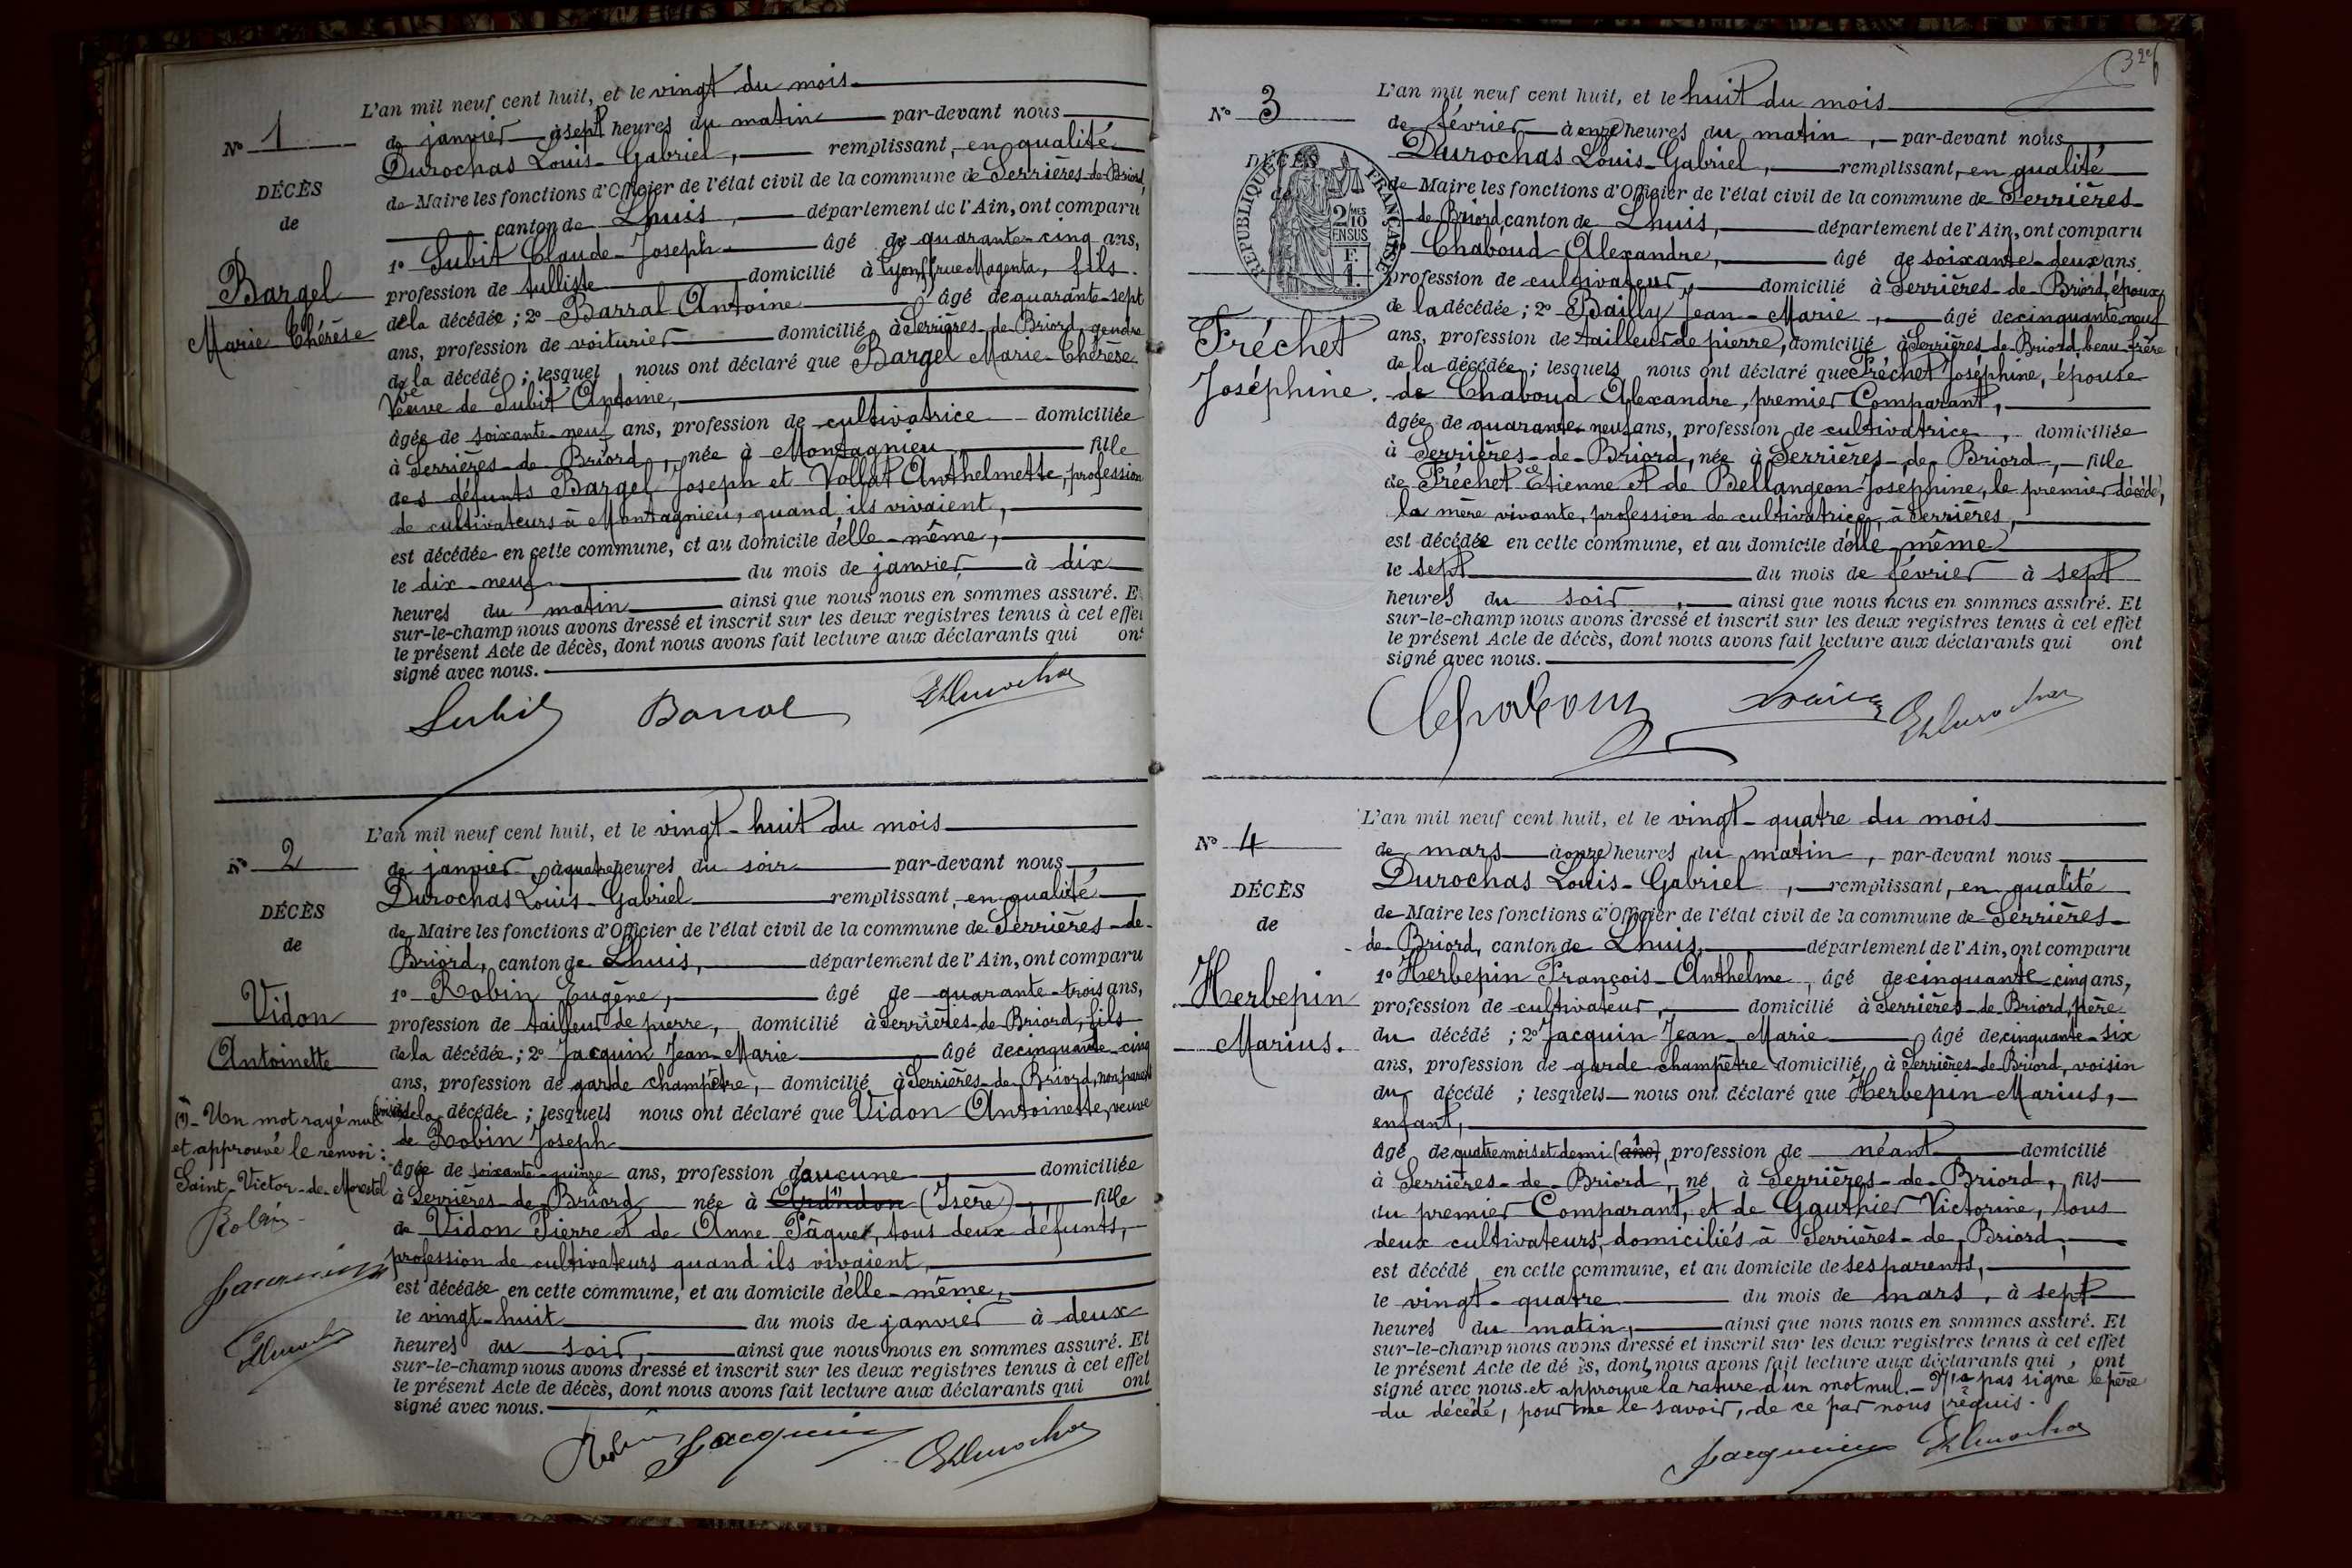 L'an mil neuf cent huit, et le vingt du mois
N° 1
de janvier à sept heures du matin par-devant nous
Durochas Louis-Gabriel, remplissant, en qualité
DÉCÈS
de Maire les fonctions d'Officier de l'état civil de la commune de Serrières-de-Briord,
de
canton de Lhuis, département de l'Ain, ont comparu
1° Subit Claude-Joseph âgé de quarante-cinq ans,
Bargel
profession de tulliste domicilié à Lyon, rue Magenta, fils
Marie-Thérèse
de la décédée ; 2° Barral Antoine âgé de quarante-sept
ans, profession de voiturier domicilié à Serrières-de-Briord, gendre
de la décédé ; lesquel nous ont déclaré que Bargel Marie-Thérèse
Veuve de Subit Antoine,
âgée de soixante-neuf ans, profession de cultivatrice domiciliée
à Serrières-de-Briord, née à Montagnieu fille
des défunts Bargel Joseph et Vollat Anthelmette, profession
de cultivateurs à Montagnieu, quand ils vivaient,
est décédée en cette commune, et au domicile d'elle-même,
le dix-neuf du mois de janvier à dix
heures du matin ainsi que nous nous en sommes assuré. E
sur-le-champ nous avons dressé et inscrit sur les deux registres tenus à cet effet
le présent Acte de décès, dont nous avons fait lecture aux déclarants qui ont
signé avec nous.
Subit Barral Durochas
L'an mil neuf cent huit, et le vingt-huit du mois
N° 2
de janvier à quatre heures du soir par-devant nous
Durochas Louis-Gabriel remplissant, en qualité
DÉCÈS
de Maire les fonctions d'Officier de l'état civil de la commune de Serrières-de-
de
Briord, canton de Lhuis, département de l'Ain, ont comparu
1° Robin Eugène, âgé de quarante-trois ans,
Vidon
profession de tailleur de pierre, domicilié à Serrières-de-Briord, fils
Antoinette
de la décédée ; 2° Jacquin Jean-Marie âgé de cinquante-cinq
ans, profession de garde champêtre, domicilié à Serrières-de-Briord, non parent
de la décédée ; lesquels nous ont déclaré que Vidon Antoinette, veuve
de Robin Joseph
âgée de soixante-quinze ans, profession d'aucune domiciliée
à Serrières-de-Briord née à Arandon (1) (Isère) fille
de Vidon Pierre et de Anne Pâquet, tous deux défunts,
profession de cultivateurs quand ils vivaient,
est décédée en cette commune, et au domicile d'elle-même,
le vingt-huit du mois de janvier à deux
heures du soir, ainsi que nous nous en sommes assuré. Et
sur-le-champ nous avons dressé et inscrit sur les deux registres tenus à cet effet
le présent Acte de décès, dont nous avons fait lecture aux déclarants qui ont
signé avec nous.
Robin Jacquin Durochas
(1) - Un mot rayé nul
et approuvé le renvoi :
Saint-Victor-de-Morestel
Robin
Jacquin
Durochas
L'an mil neuf cent huit, et le huit du mois
N° 3
de février à onze heures du matin, par-devant nous
Durochas Louis-Gabriel, remplissant, en qualité
DÉCÈS
de
RÉPUBLIQUE FRANÇAISE
2 MES
10
EN SUS
F.
1.
de Maire les fonctions d'Officier de l'état civil de la commune de Serrières-
de-Briord, canton de Lhuis, département de l'Ain, ont comparu
1° Chaboud Alexandre, âgé de soixante-deux ans,
profession de cultivateur, domicilié à Serrières-de-Briord, époux
de la décédée ; 2° Bailly Jean-Marie, âgé de cinquante-neuf
Fréchet
ans, profession de tailleur de pierre, domicilié à Serrières-de-Briord, beau-frère
Joséphine.
de la décédée ; lesquels nous ont déclaré que Fréchet Joséphine, épouse
de Chaboud Alexandre, premier Comparant,
âgée de quarante-neuf ans, profession de cultivatrice, domiciliée
à Serrières-de-Briord, née à Serrières-de-Briord, fille
de Fréchet Etienne et de Bellangeon Joséphine, le premier décédé,
la mère vivante, profession de cultivatrice, à Serrières,
est décédée en cette commune, et au domicile d'elle-même
le sept du mois de février à sept
heures du soir, ainsi que nous nous en sommes assuré. Et
sur-le-champ nous avons dressé et inscrit sur les deux registres tenus à cet effet
le présent Acte de décès, dont nous avons fait lecture aux déclarants qui ont
signé avec nous.
Chaboud Durochas
L'an mil neuf cent huit, et le vingt-quatre du mois
N° 4
de mars à onze heures du matin, par-devant nous
Durochas Louis-Gabriel, remplissant, en qualité
DÉCÈS
de Maire les fonctions d'Officier de l'état civil de la commune de Serrières-
de
de-Briord, canton de Lhuis, département de l'Ain, ont comparu
1° Herbepin François-Anthelme, âgé de cinquante-cinq ans,
Herbepin
profession de cultivateur, domicilié à Serrières-de-Briord, père
Marius.
du décédé ; 2° Jacquin Jean-Marie âgé de cinquante-six
ans, profession de garde champêtre domicilié à Serrières-de-Briord, voisin
du décédé ; lesquels nous ont déclaré que Herbepin Marius,
enfant,
âgé de quatre mois et demi (ans), profession de néant domicilié
à Serrières-de-Briord, né à Serrières-de-Briord, fils
du premier Comparant, et de Gauthier Victorine, tous
deux cultivateurs, domiciliés à Serrières-de-Briord,
est décédé en cette commune, et au domicile de ses parents,
le vingt-quatre du mois de mars, à sept
heures du matin, ainsi que nous nous en sommes assuré. Et
sur-le-champ nous avons dressé et inscrit sur les deux registres tenus à cet effet
le présent Acte de décès, dont nous avons fait lecture aux déclarants qui ont
signé avec nous. et approuvé la rature d'un mot nul. - N'a pas signé le père
du décédé, pour ne le savoir, de ce par nous requis.
Jacquin Durochas